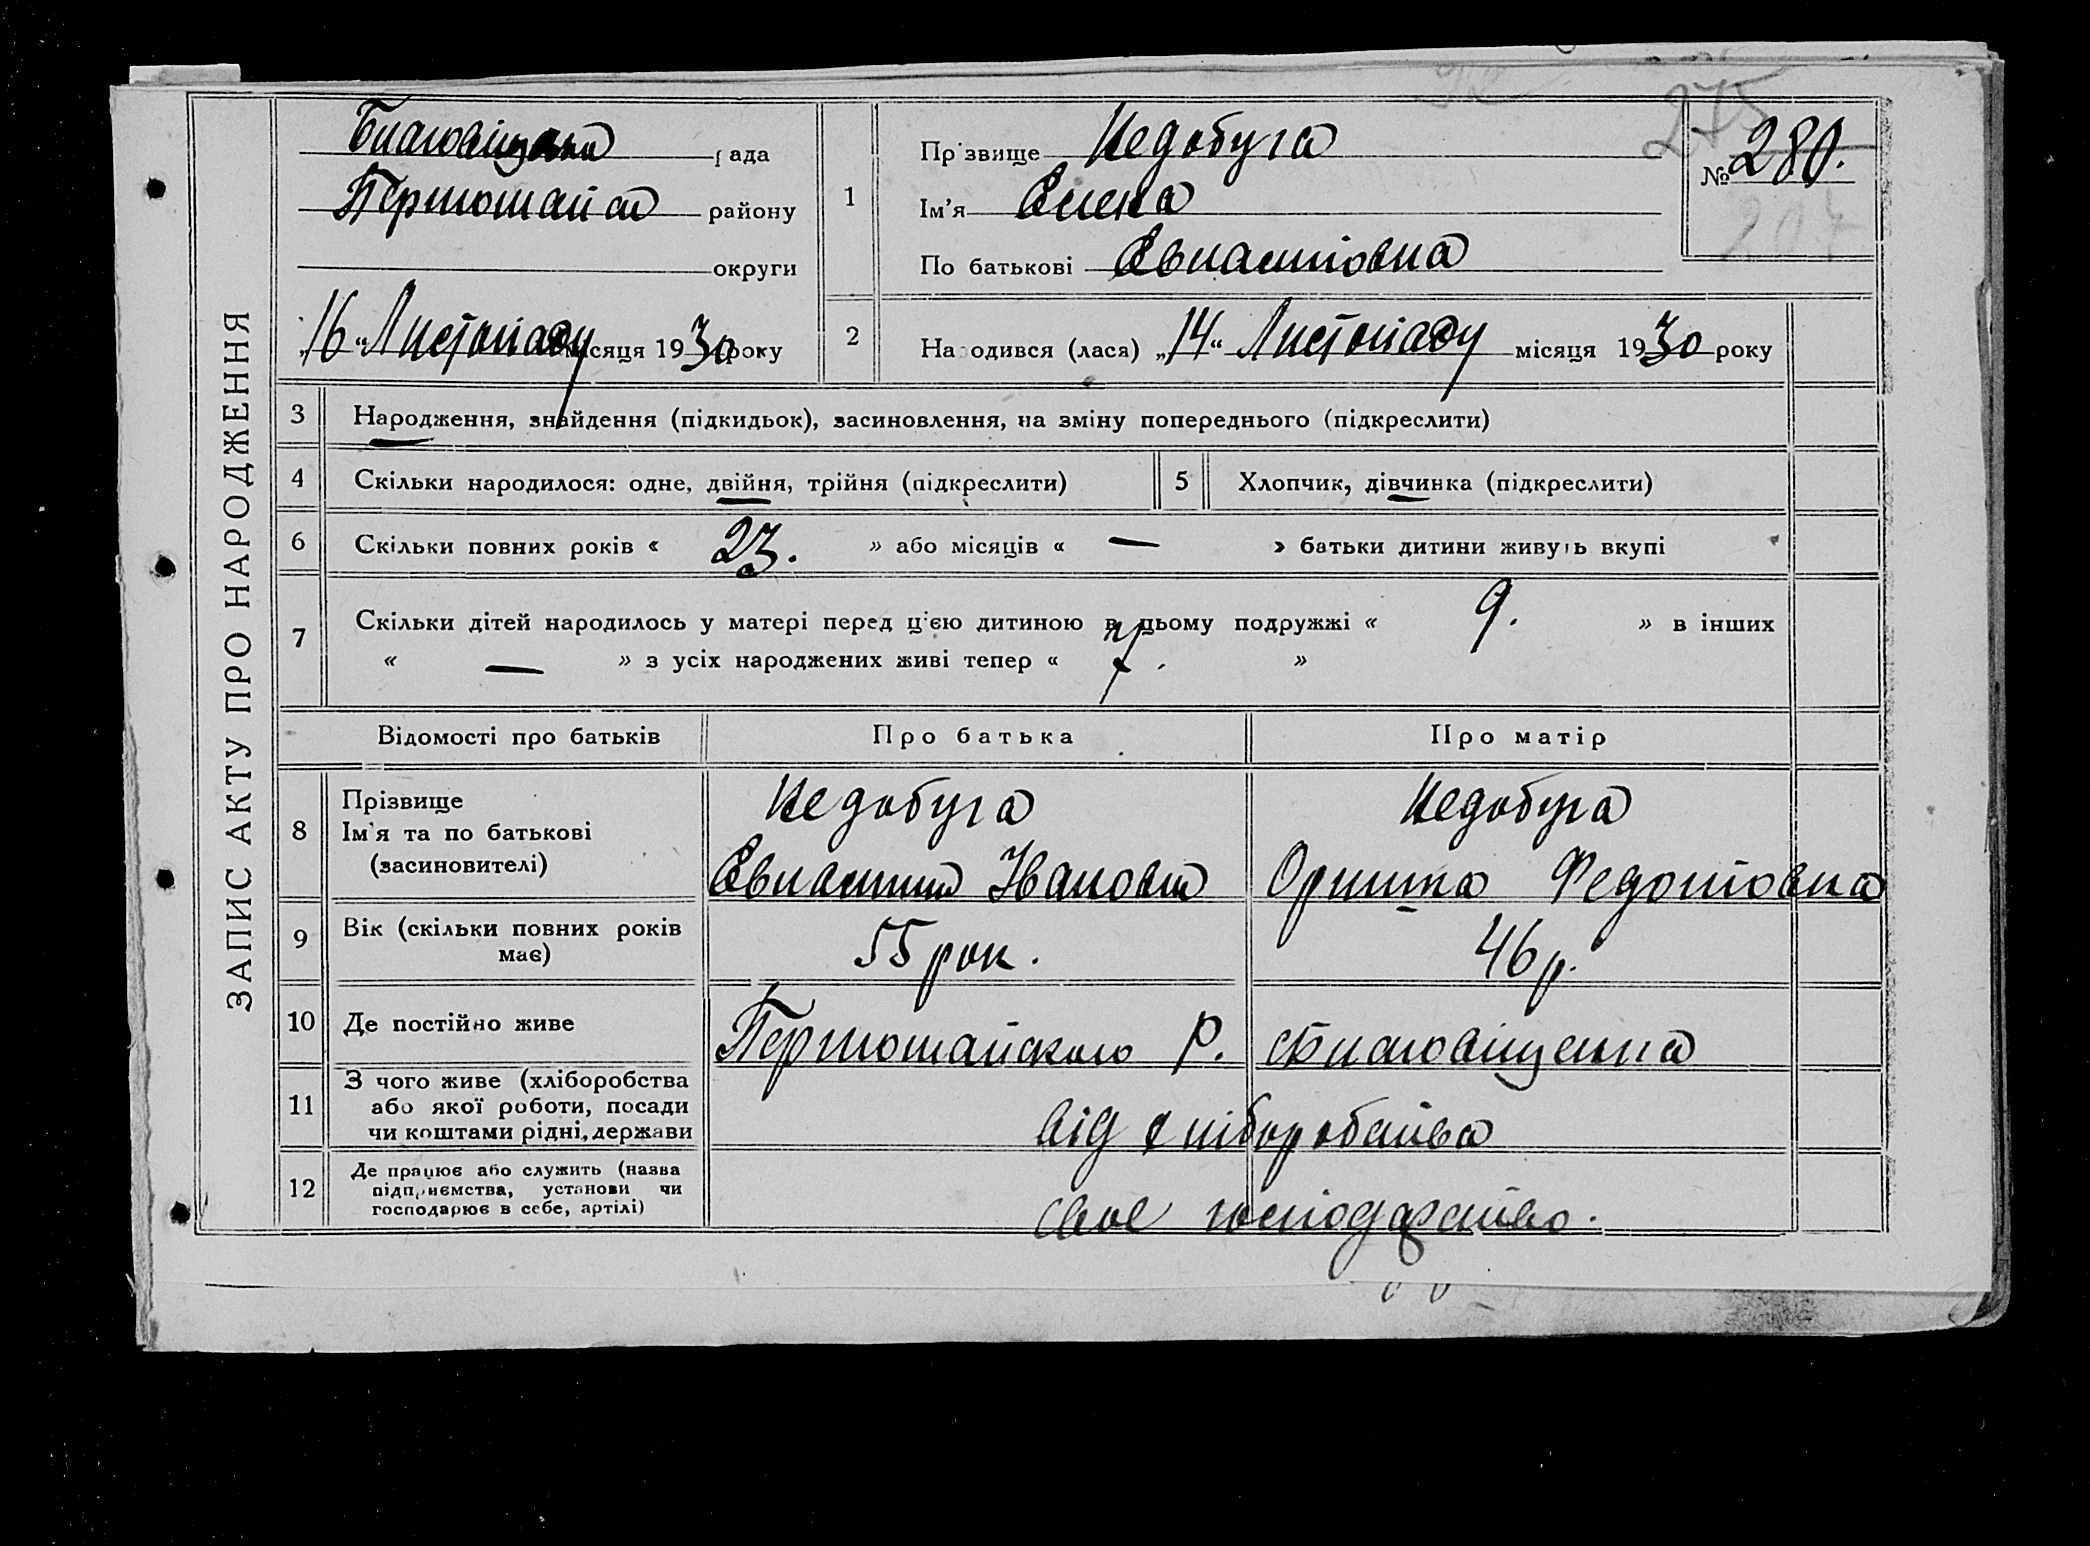 ЗАПИС АКТУ ПРО НАРОДЖЕННЯ
Благовіщенка рада
Першомайск району
округи
„16“ Листопаду місяця 1930 року
1
Прізвище Недобуга
Ім'я Єлена
По батькові Євлампіовна
275
№ 280.
207
2
Народився (лася) „14“ Листопаду місяця 1930 року
3 Народження, знайдення (підкидьок), засиновлення, на зміну попереднього (підкреслити)
4 Скільки народилося: одне, двійня, трійня (підкреслити)
5 Хлопчик, дівчинка (підкреслити)
6 Скільки повних років « 23. » або місяців « — » батьки дитини живуть вкупі
7 Скільки дітей народилось у матері перед цією дитиною в цьому подружжі « 9. » в інших
« — » з усіх народжених живі тепер « 7. »
Відомості про батьків Про батька Про матір
8 Прізвище
Ім'я та по батькові
(засиновителі)
Недобуга
Євлампий Іванович
Недобуга
Оришка Федотовна
9 Вік (скільки повних років
має)
55 рок. 46 р.
10 Де постійно живе Першомайского Р. с Благовіщенка
11 З чого живе (хліборобства
або якої роботи, посади
чи коштами рідні, держави
від хліборобства
12 Де працює або служить (назва
підприємства, установи чи
господарює в себе, артілі)
своє господарство.